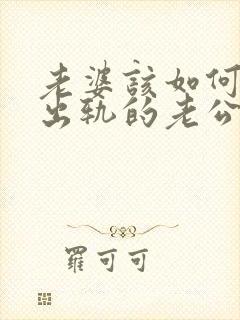 老婆該如何
出轨的老公
羅可可